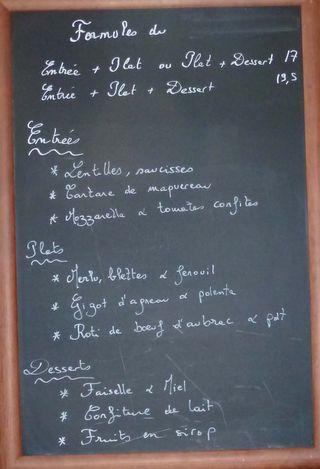 Formules du
Entrée + Plat ou Plat + Dessert 17
Entrée + Plat + Dessert 19,5
Entrées
* Lentilles, saucisses
* Tartare de maquereau
* Mozzarella & tomates confites
Plats
* Merlu, blettes & fenouil
* Gigot d'agneau & polenta
* Roti de bœuf d'aubrac &
Desserts
* Faiselle & Miel
* Confiture de lait
* Fruits en sirop